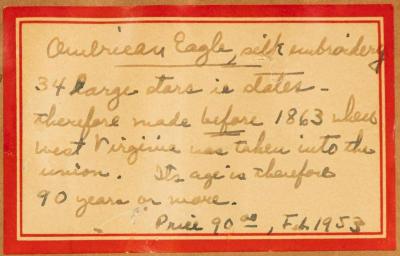 American Eagle, silk embroidery
34 large stars ie states -
therefore made before 1863 when
West Virginia was taken into the
union. Its age is therefore
90 years or more.
Price 90 00, Feb 1953